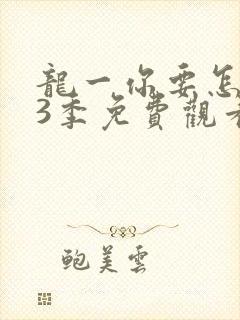 龍一你要怎
3季免費觀看
鮑美雲